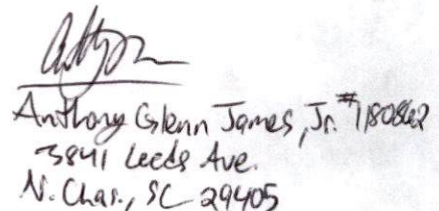 Anthony Glenn James, Jr. #1180862
3841 Leeds Ave.
N. Chas., SC 29405